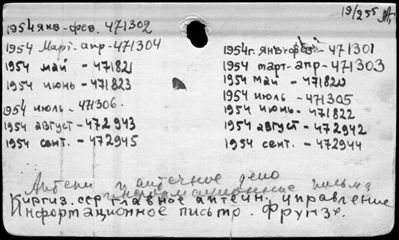 19/255
1954 янв-фев. 471302
1954 Март. апр-471304
1954г. янв-фев-471301
1954 май - 471821
1954 март-апр-471303
1954 июнь - 471823
1954 май - 471820
1954 июль - 471306.
1954 июль - 471305
1954 июнь - 471822
1954 август - 472943
1954 август - 472942
1954 сент. - 472945
1954 сент. - 472944
Аптеки и аптечное дело
информационные письма
Киргиз. сср главное аптечн. управление
Информационное письмо. Фрунзе.